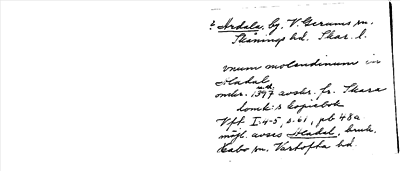 ? Ardala, by, V. Gerums sn.
Skånings hd. Skar. l.
vnum molendinum in
Hladal
omkr. 1397 u.d. avskr. fr. Skara
domk:s kopiebok
Vft I:4-5, s. 61, pb 48a
möjl. avses Hladal, kvarn,
Kabo sn. Vartofta hd.